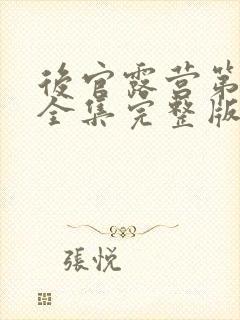 後官露营第
全集完整版
張悦